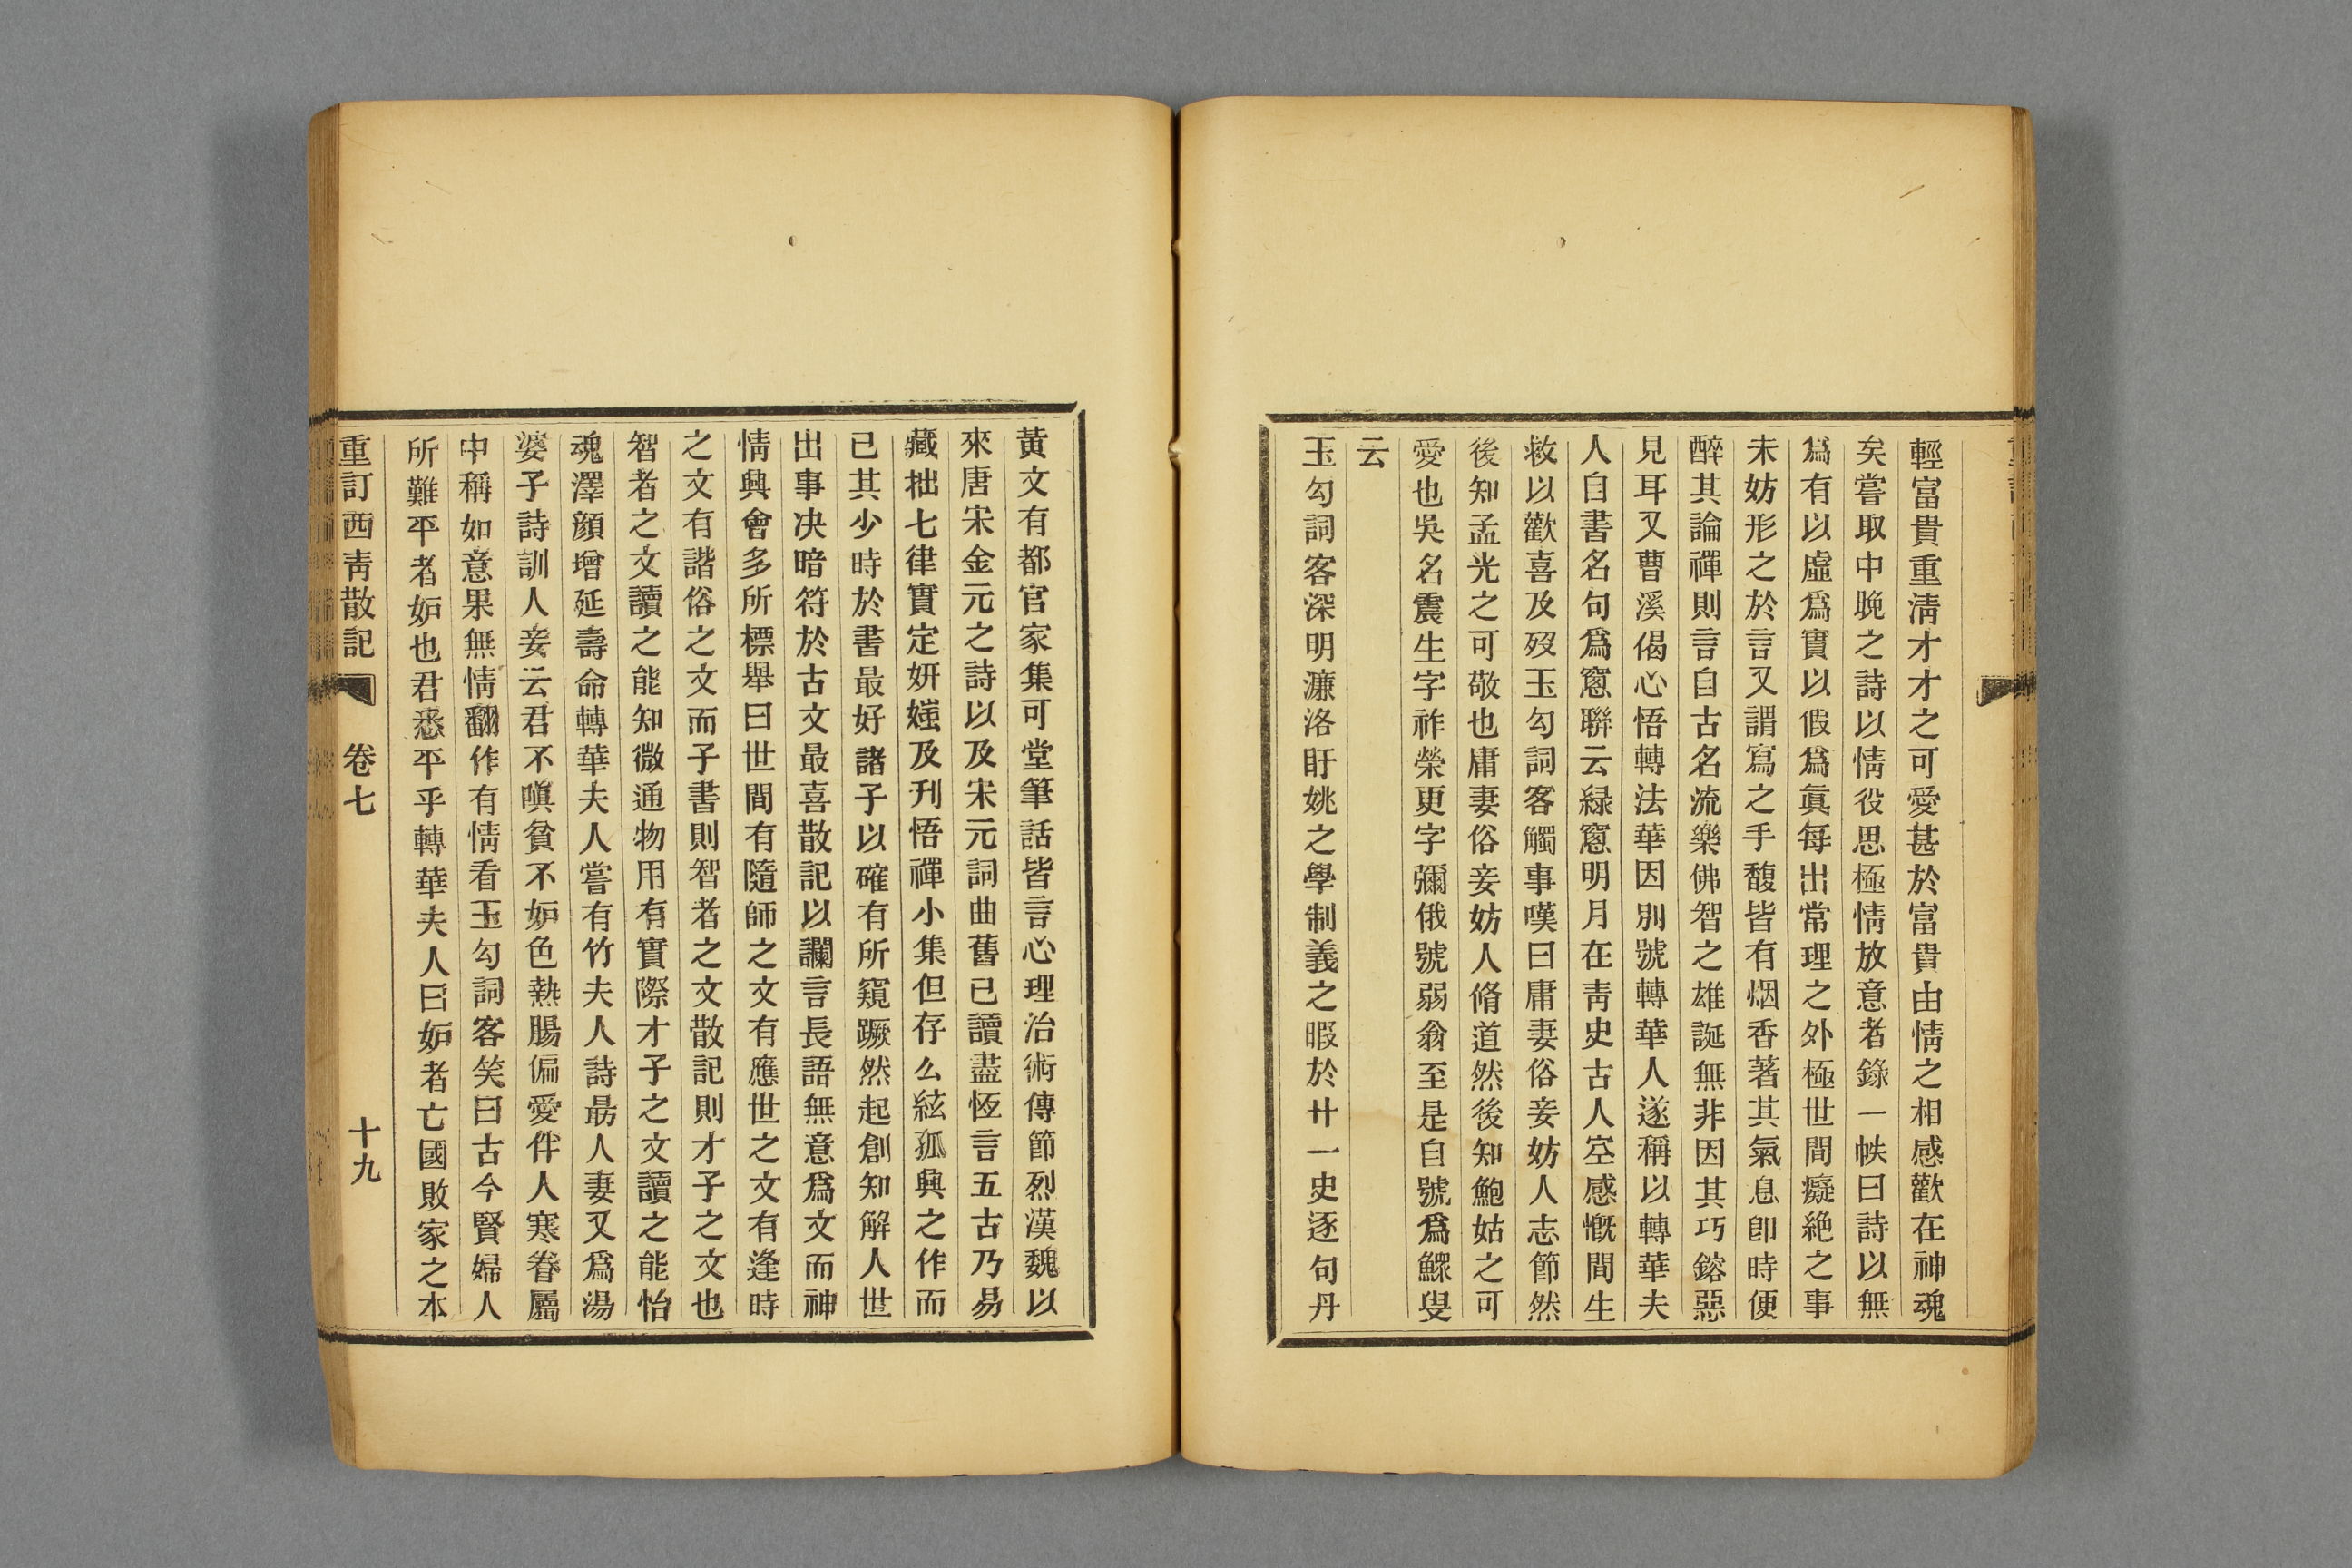 輕富貴重淸才才之可愛甚於富貴由情之相感歡在神魂
矣嘗取中晚之詩以情役思極情放意者錄一帙曰詩以無
爲有以虛爲實以假爲眞每出常理之外極世間癡絕之事
未妨形之於言又謂寫之手馥皆有烟香著其氣息卽時便
醉其論禪則言自古名流樂佛智之雄誕無非因其巧鎔惡
見耳又曹溪偈心悟轉法華因別號轉華人遂稱以轉華夫
人自書名句爲窻聯云緑窻明月在靑史古人空感慨間生
救以歡喜及歿玉勾詞客觸事嘆曰庸妻俗妾妨人志節然
後知孟光之可敬也庸妻俗妾妨人脩道然後知鮑姑之可
愛也吳名震生字祚榮更字彌俄號弱翁至是自號爲鰥叟
云
玉勾詞客深明濂洛盱姚之學制義之暇於廿一史逐句丹
黃文有都官家集可堂筆話皆言心理治術傳節烈漢魏以
來唐宋金元之詩以及宋元詞曲舊已讀盡恆言五古乃易
藏拙七律實定妍媸及刋悟禪小集但存么絃孤興之作而
已其少時於書最好諸子以確有所窺蹶然起創知解人世
出事决暗符於古文最喜散記以讕言長語無意爲文而神
情興會多所標舉曰世間有隨師之文有應世之文有逢時
之文有諧俗之文而子書則智者之文散記則才子之文也
智者之文讀之能知微通物用有實際才子之文讀之能怡
魂澤顔增延壽命轉華夫人嘗有竹夫人詩最人妻又爲湯
婆子詩訓人妾云君不嗔貧不妒色熱腸偏愛伴人寒眷屬
中稱如意果無情翻作有情看玉勾詞客笑曰古今賢婦人
所難平者妒也君悉平乎轉華夫人曰妒者亡國敗家之本
重訂西靑散記 卷七 十九